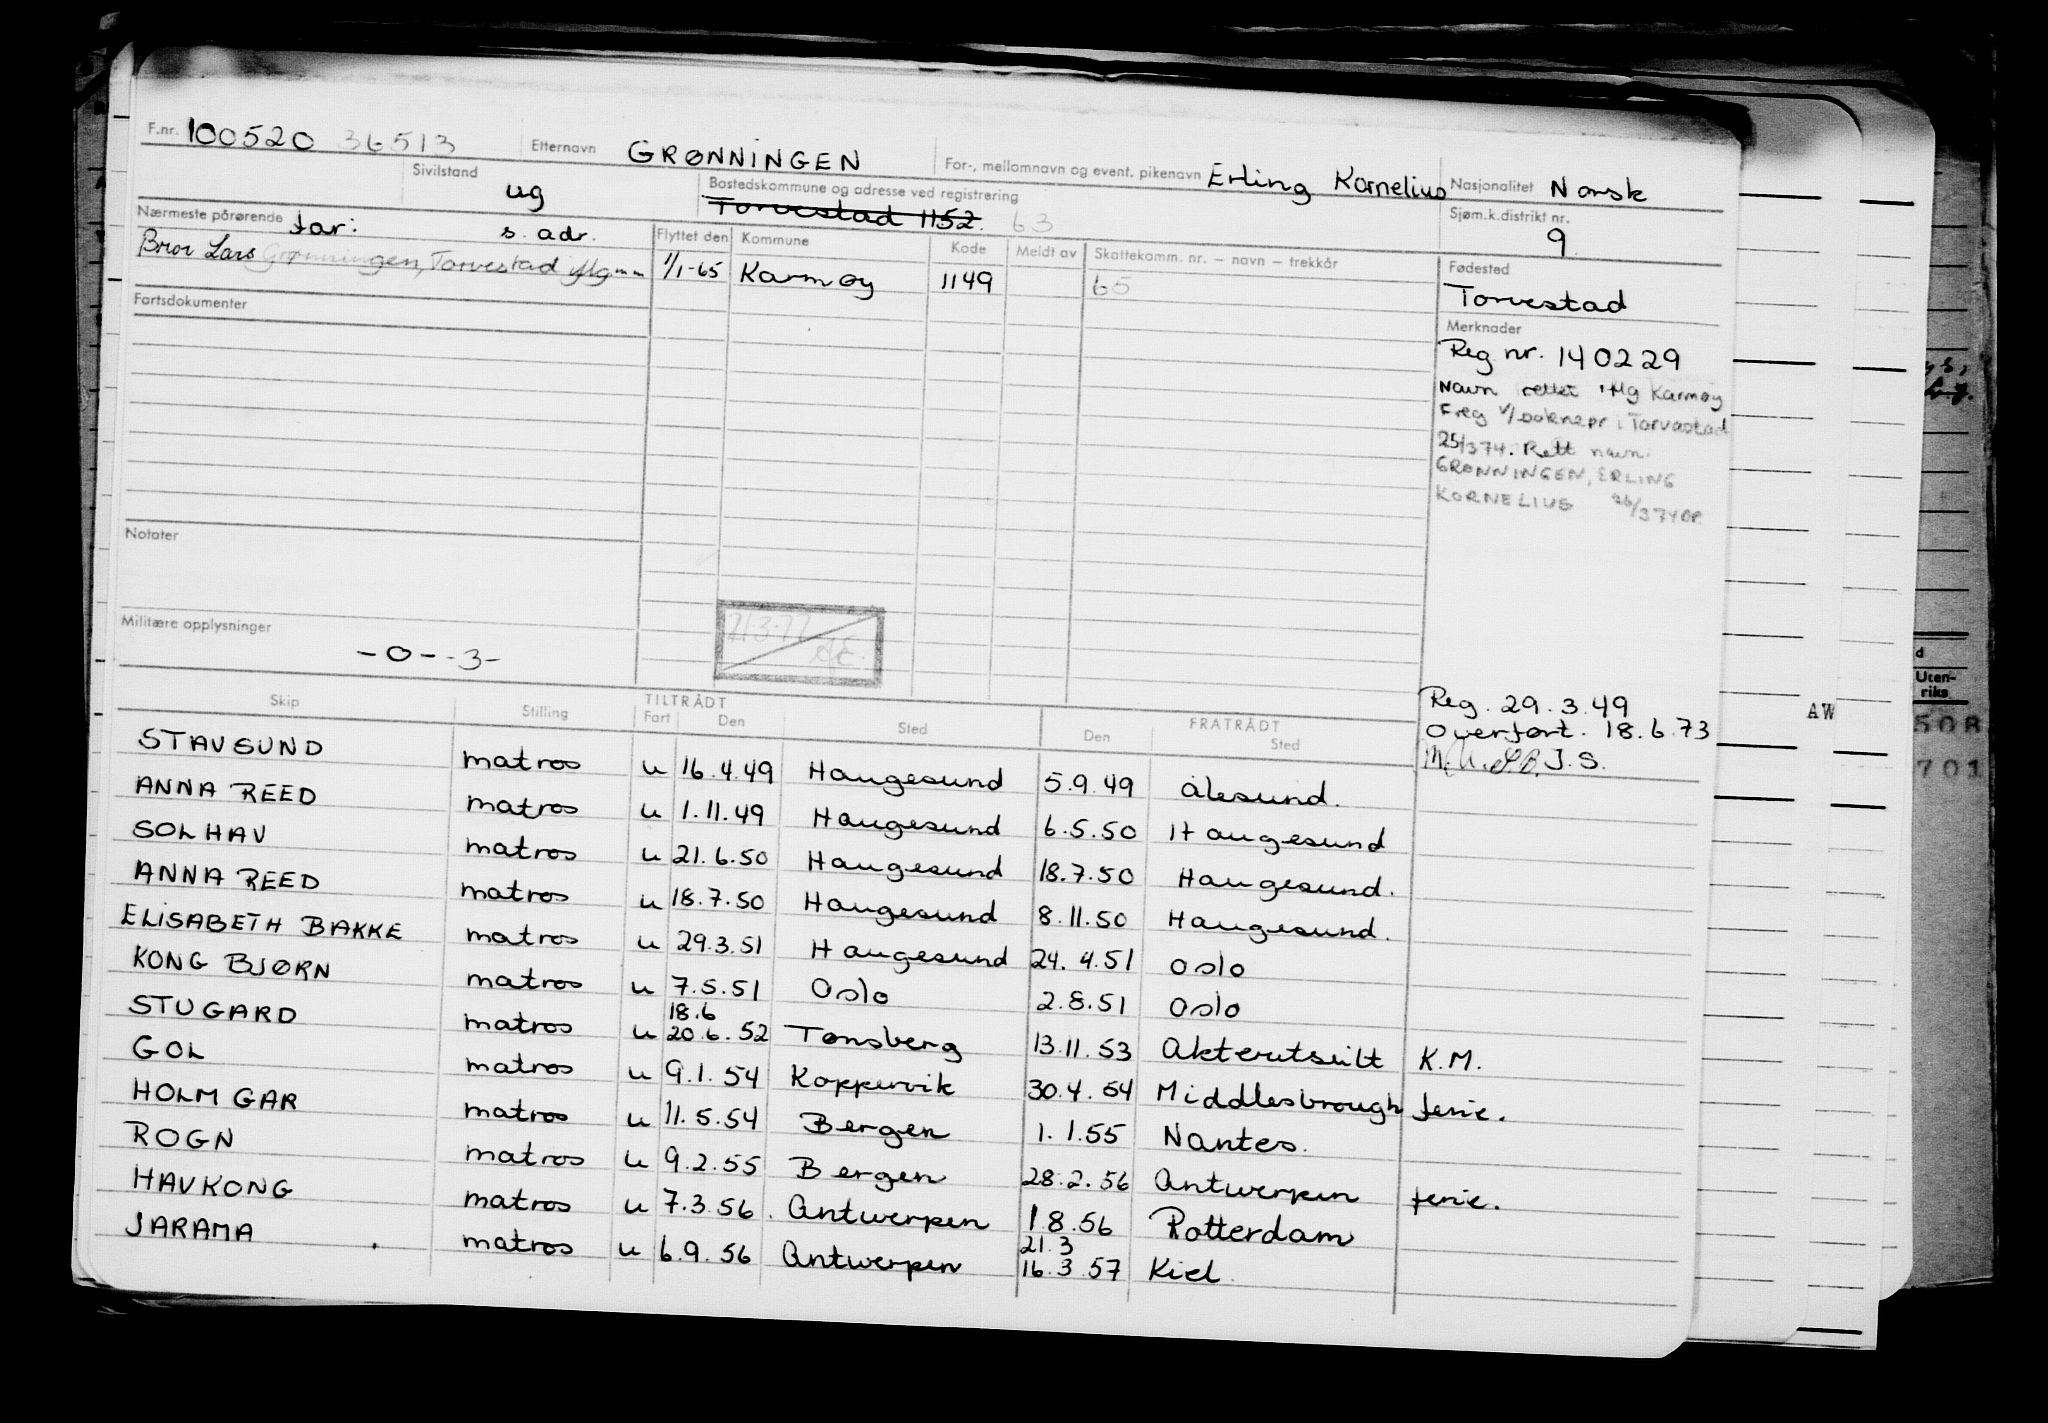 F.nr. 100520 36513 Etternavn GRØNNINGEN For-, mellomnavn og event. pikenavn Erling Kornelius Nasjonalitet Norsk
Sivilstand ug Bostedskommune og adresse ved registrering Torvestad 1152. 63 Sjøm.k.distrikt nr. 9
Nærmeste pårørende far: s. adr. Flyttet den Kommune Kode Meldt av Skattekomm. nr. — navn — trekkår Fødested
Bror Lars Grønningen, Torvestad iflg 1/1-65 Karmøy 1149 65 Torvestad
Fartsdokumenter
Merknader
Reg nr. 140229
Navn rettet iflg Karmøy
Freg v/ i Torvastad
25/3 74. Rett navn:
GRØNNINGEN, ERLING
KORNELIUS 26/3 74
Notater
21.3.77
Militære opplysninger
-0--3-
Reg. 29.3.49
Overført. 18.6.73
J.S.
Skip Stilling TILTRÅDT Fart Den Sted FRATRÅDT Den Sted
STAVSUND matros u 16.4.49 Haugesund 5.9.49 Ålesund.
ANNA REED matros u 1.11.49 Haugesund 6.5.50 Haugesund
SOLHAV matros u 21.6.50 Haugesund 18.7.50 Haugesund.
ANNA REED matros u 18.7.50 Haugesund 8.11.50 Haugesund.
ELISABETH BAKKE matros u 29.3.51 Haugesund 24.4.51 Oslo
KONG BJØRN matros u 7.5.51 Oslo 2.8.51 Oslo
18.6
STUGARD matros u 20.6.52 Tønsberg 13.11.53 Akterutseilt K.M.
GOL matros u 9.1.54 Koppervik 30.4.54 Middlesbrough ferie.
HOLMGAR matros u 11.5.54 Bergen 1.1.55 Nantes.
ROGN matros u 9.2.55 Bergen 28.2.56 Antwerpen ferie.
HAVKONG matros u 7.3.56. Antwerpen 1.8.56 Rotterdam
21.3
JARAMA matros u 6.9.56 Antwerpen 16.3.57 Kiel.
d
Uten-
riks
AW
508
701